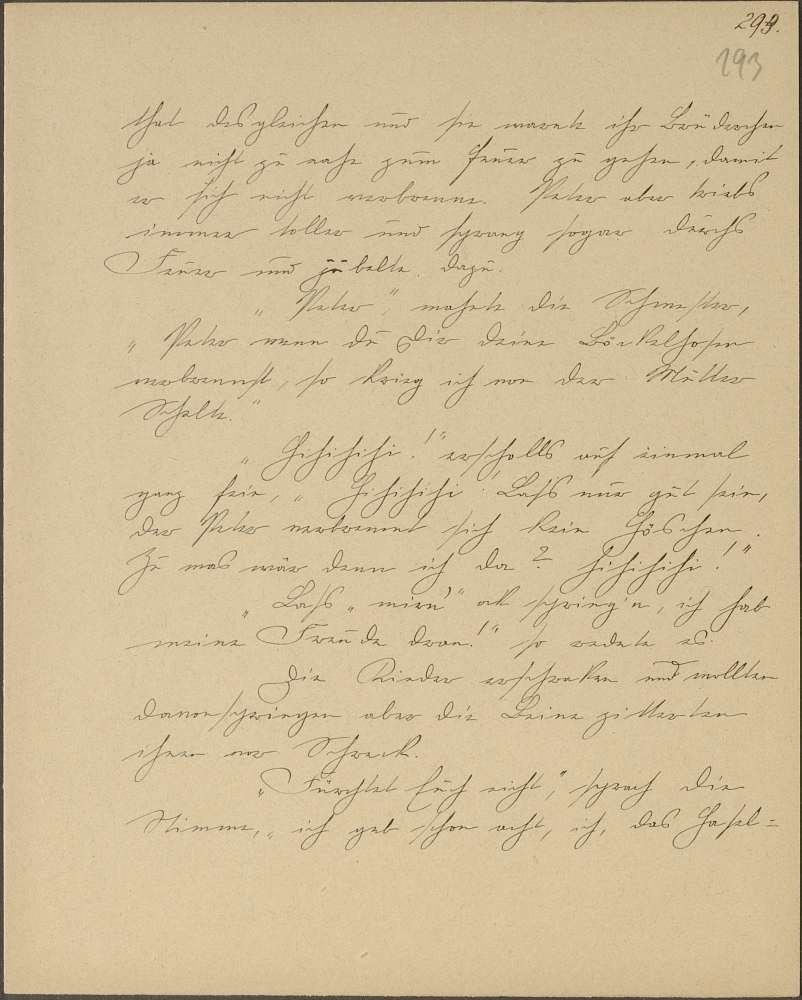 299.
293
that desgleichen und sie warnte ihr Brüderchen
ja nicht zu nahe zum Feuer zu gehen, damit
er sich nicht verbrenne. Peter aber triebs
immer toller und sprang sogar durchs
Feuer und jubelte dazu.
„Peter", mahnte die Schwester,
„Peter wenn du Dir deine Böckelhosen
verbrennst, so krieg ich von der Mutter
Schelte."
„Hihihihi!" erscholls auf einmal
ganz fein, „Hihihihi! Lass nur gut sein,
der Peter verbrennt sich kein Höschen.
Zu was wär denn ich da? Hihihihi!"
„Lass „mirú" ok springn, ich hab
meine Freude dran!" so redete es.
Die Kinder erschraken und wollten
davonspringen aber die Beine zitterten
ihnen vor Schreck.
„Fürchtet Euch nicht", sprach die
Stimme, „ich geb schon acht, ich, das Hasel=